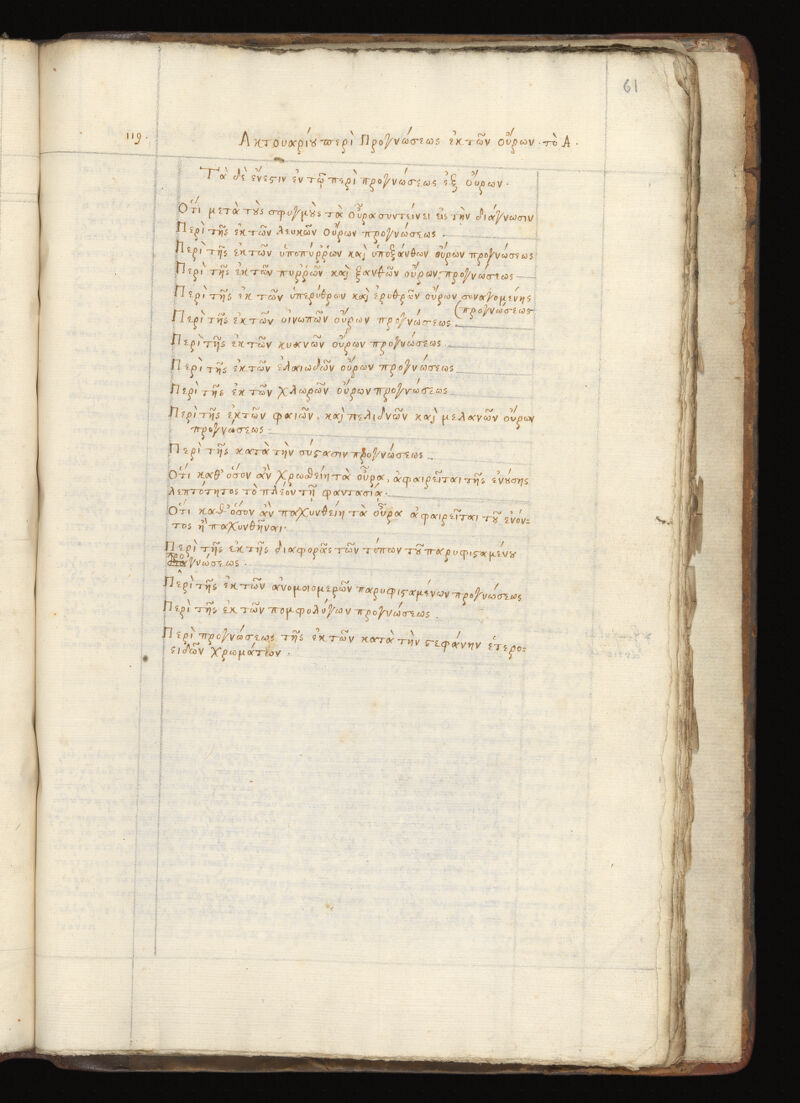 61
119.
Ακτουαρίου περὶ Προγνώσεως ἐκ τῶν οὔρων τὸ Α.
Τὰ δὲ ἔνεστιν ἐν τῷ περὶ προγνώσεως ἐξ οὔρων.
Ὅτι μετὰ τοὺς σφυγμοὺς τὰ οὖρα συντείνει εἰς τὴν διάγνωσιν
Περὶ τῆς ἐκ τῶν λευκῶν οὔρων προγνώσεως.
Περὶ τῆς ἐκ τῶν ὑποπύρρων καὶ ὑποξάνθων οὔρων προγνώσεως
Περὶ τῆς ἐκ τῶν πυρρῶν καὶ ξανθῶν οὔρων προγνώσεως
Περὶ τῆς ἐκ τῶν ὑπερύθρων καὶ ἐρυθρῶν οὔρων συναγομένης
(προγνώσεως
Περὶ τῆς ἐκ τῶν οἰνωπῶν οὔρων προγνώσεως.
Περὶ τῆς ἐκ τῶν κυανῶν οὔρων προγνώσεως.
Περὶ τῆς ἐκ τῶν ἐλαιωδῶν οὔρων προγνώσεως
Περὶ τῆς ἐκ τῶν χλωρῶν οὔρων προγνώσεως
Περὶ τῆς ἐκ τῶν φαιῶν, καὶ πελιδνῶν καὶ μελανῶν οὔρων
προγνώσεως.
Περὶ τῆς κατὰ τὴν σύστασιν προγνώσεως.
Ὅτι καθ' ὅσον ἂν χρωσθείη τὰ οὖρα, ἀφαιρεῖται τῆς ἐνούσης
λεπτότητος τὸ πλέον τῇ φαντασίᾳ.
Ὅτι καθ' ὅσον ἂν παχυνθείη τὰ οὖρα ἀφαιρεῖται τοῦ ἐνόν-
τος ἢ παχυνθῆναι.
Περὶ τῆς ἐκ τῆς διαφορᾶς τῶν τόπων τοῦ παρυφισταμένου
προγνώσεως.
Περὶ τῆς ἐκ τῶν ἀνομοιομερῶν παρυφισταμένων προγνώσεως
Περὶ τῆς ἐκ τῶν πομφολύγων προγνώσεως.
Περὶ προγνώσεως τῆς ἐκ τῶν κατὰ τὴν στεφάνην ἑτερο-
ειδῶν χρωμάτων.